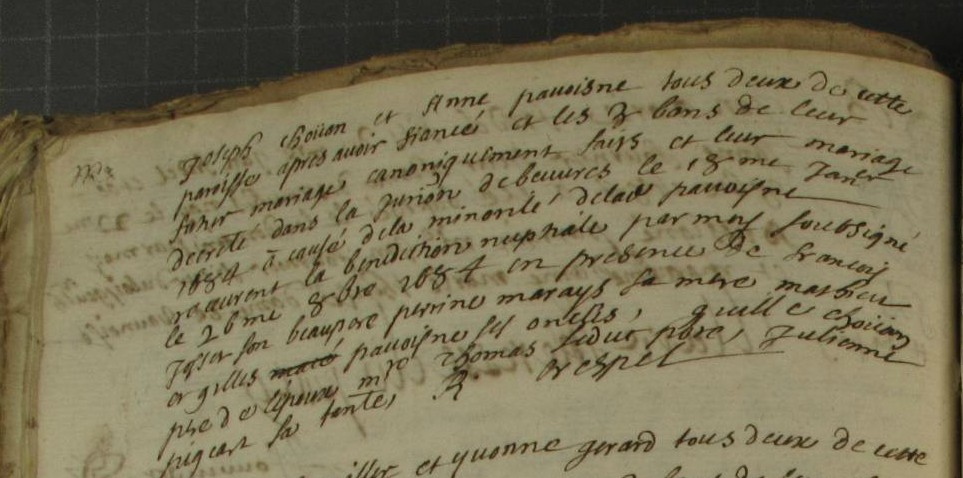 Joseph choüan et Anne pauoisne tous deux de cette
paroisse apres auoir fiancé et les 3 bans de leur
futur mariage canoniquement faits et leur mariage
decreté dans la jurion de beuures le 18me Janer
1684 a cause de la minorité de lad pauoisne
receurent la benediction nuptiale par moy soubsigné
le 26me 8bre 1684 en presence de francois
Tessor son beaupere perrine marays sa mere mathieu
et gilles pauoisne ses oncles, guille choüan
pere de lepoux mre Thomas feduc pbre, Julienne
piquart sa tante, R. orespel
et yuonne gerard tous deux de cette